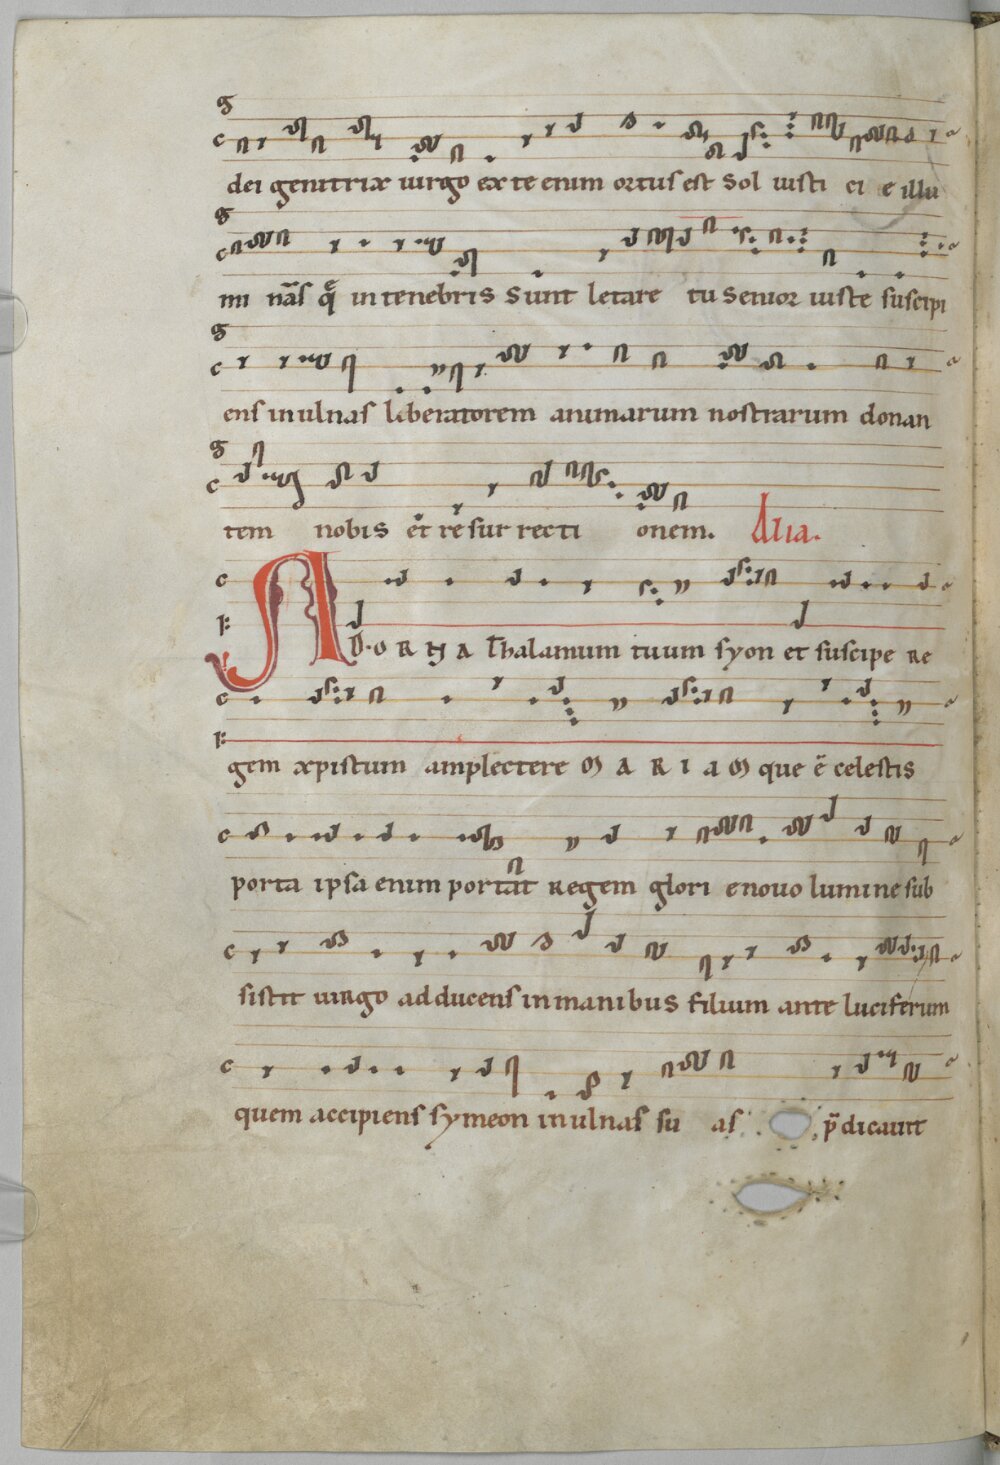 dei genitrix uirgo ex te enim ortus est Sol iusti ci e illu
mi nãs q̃ in tenebris Sunt letare tu Senior iuste suscipi
ens in ulnas liberatorem animarum nostrarum donan
tem nobis et resur recti onem. Alia.
ADORNA Thalamum tuum syon et suscipe Re
gem xpistum amplectere MARIAM que ẽ celestis
porta ipsa enim portat Regem glori e nouo lumine sub
sistit uiRgo adducens in manibus filium ante luciferum
quem accipiens symeon in ulnas su as p̃dicauit